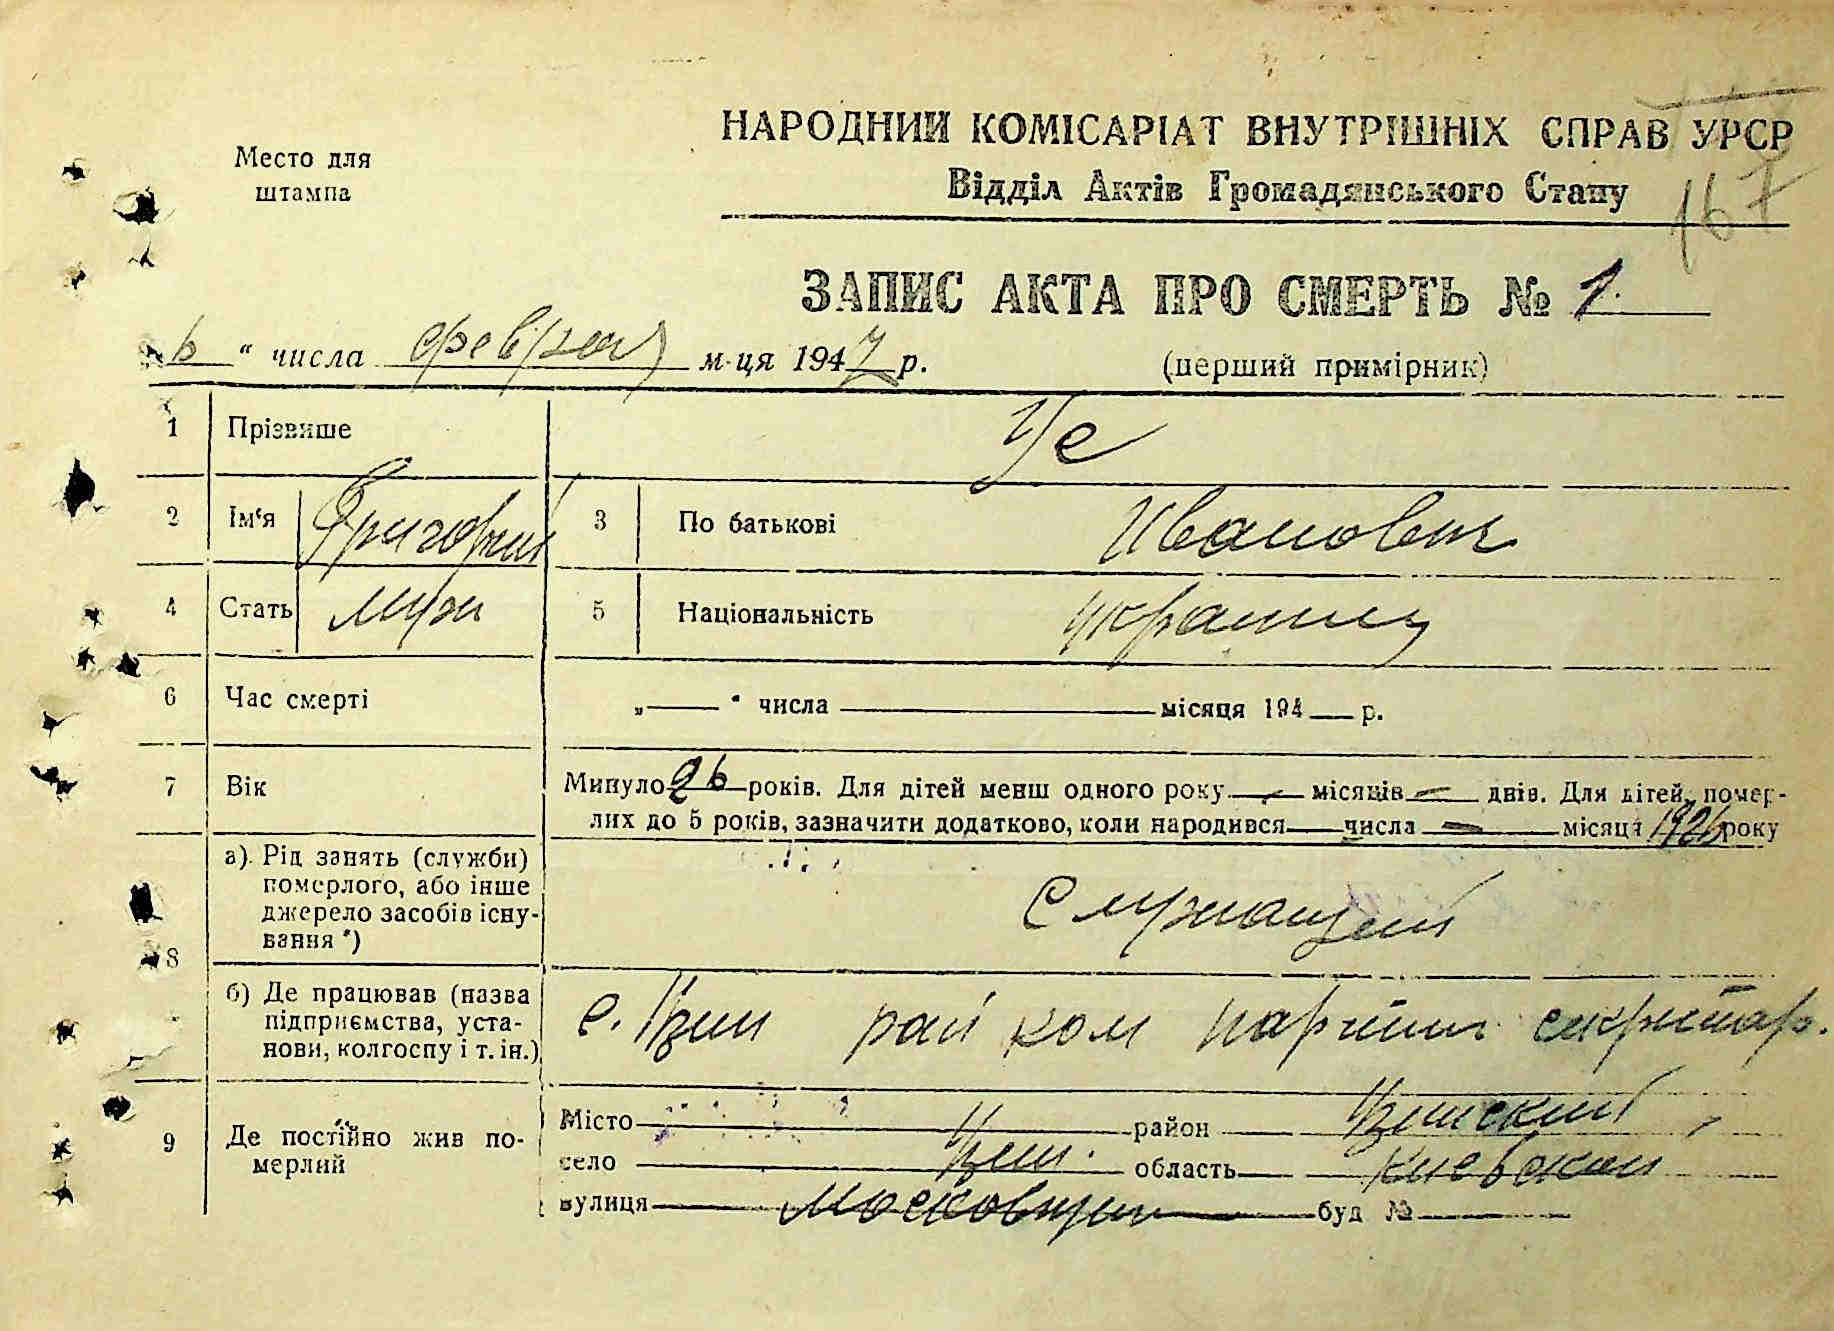 Место для
штампа
НАРОДНИЙ КОМІСАРІАТ ВНУТРІШНІХ СПРАВ УРСР
Відділ Актів Громадянського Стану
167
ЗАПИС АКТА ПРО СМЕРТЬ № 1.
6 " числа февраля м-ця 1947 р.
(перший примірник)
1 Прізвише Це
2 Ім'я Григорий 3 По батькові Иванович
4 Стать муж 5 Національність украинец
6 Час смерті „—— " числа —— місяця 194 — р.
7 Вік Минуло 26 років. Для дітей менш одного року — місяців — днів. Для дітей, помер-
лих до 5 років, зазначити додатково, коли народився — числа — місяця 1926 року
8 а) Рід занять (служби)
померлого, або інше
джерело засобів існу-
вання *)
Служащий
б) Де працював (назва
підприємства, уста-
нови, колгоспу і т. ін.)
с. Узин рай ком партии секретар.
9 Де постійно жив по-
мерлий
Місто —— район Узинский
село Узин. область Киевская
вулиця буд №